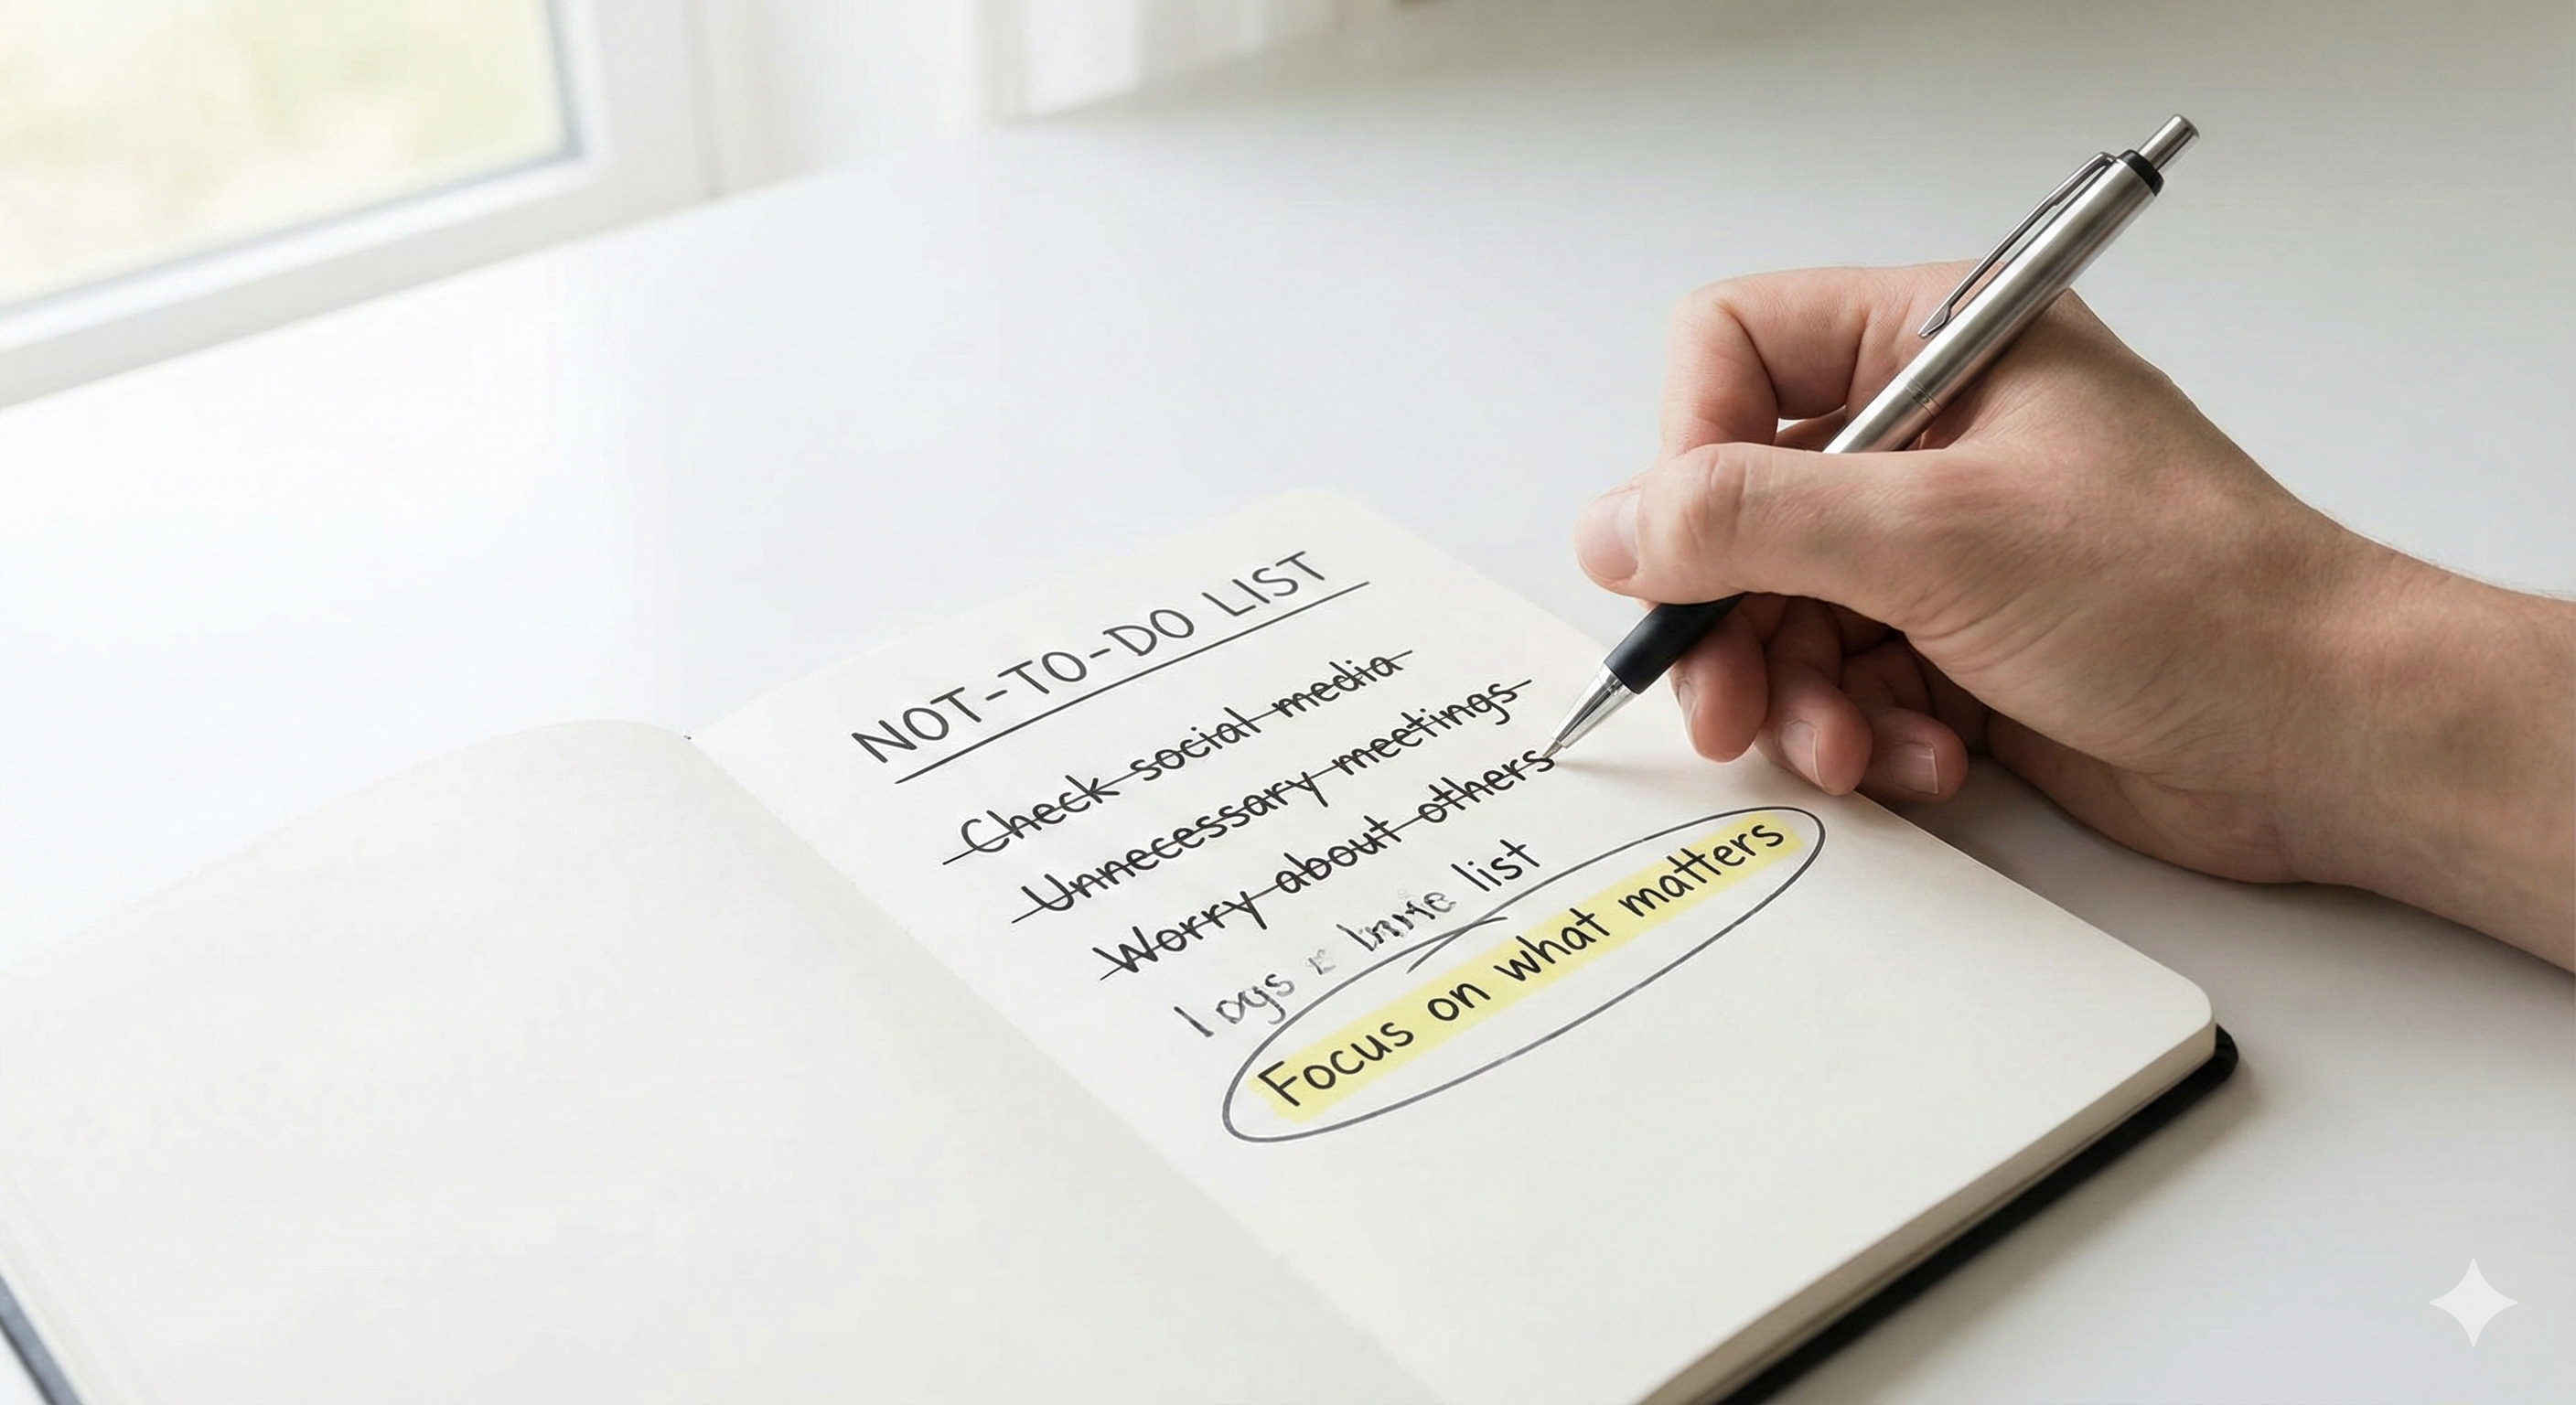 NOT-TO-DO LIST
Check social media
Unnecessary meetings
Worry about others
list
Focus on what matters